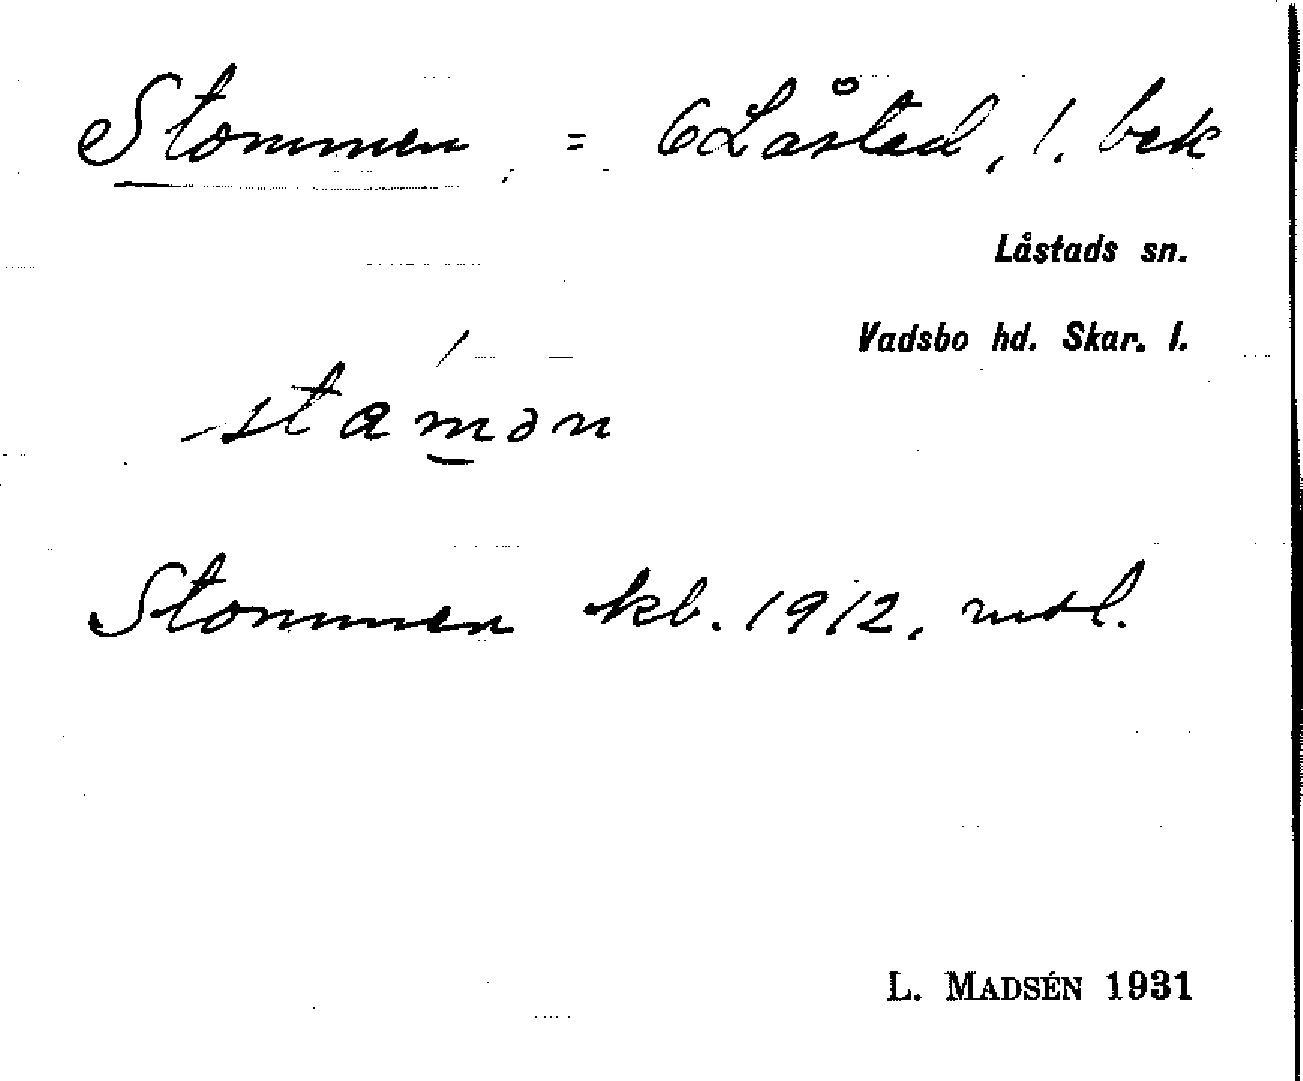 Stommen = Låstad, 1. bek
Låstads sn.
Vadsbo hd. Skar. l.
stam̲ən
Stommen kb. 1912, mtl.
L. MADSÉN 1931